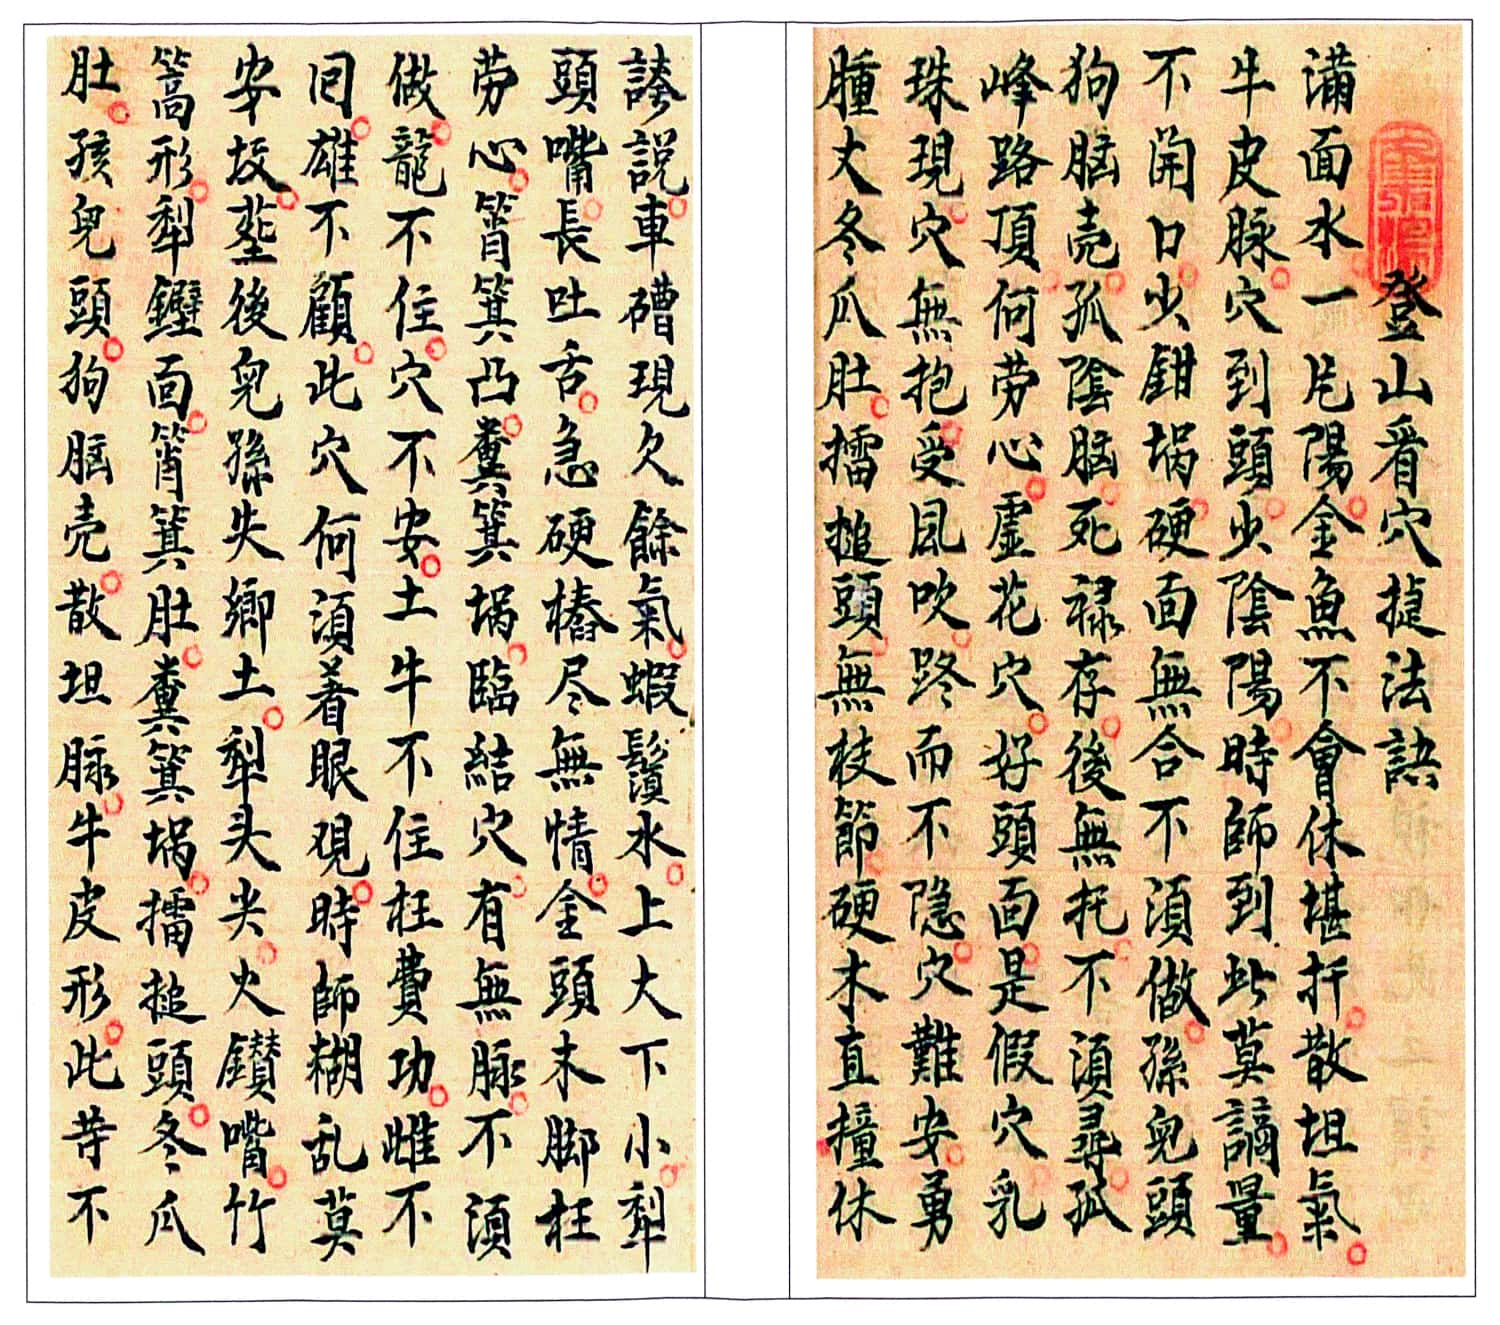 登山看穴捷法訣
滿面水一片陽金魚不會休堪扦散坦氣
牛皮脉穴到頭少陰陽時師到此莫謫量
不開口少鉗堝硬面無合不須做孫兒頭
狗腦壳孤陰腦死祿存後無托不須尋孤
峰路頂何劳心虛花穴好頭面是假穴乳
珠現穴無抱受風吹跨而不隐穴難安勇
腫丈冬瓜肚擂搥頭無枝節硬木直撞休
誇說車磳現欠餘氣蝦鬚水上大下小犁
頭嘴長吐舌急硬樁尽無情金頭木脚枉
劳心筲箕凸糞箕堝臨結穴有無脉不須
做龍不住穴不安土牛不住枉費功雌不
囘雄不顧此穴何須着眼观時師糊乱莫
安坟塟後兒孫失鄉土犁头尖火鑚嘴竹
篙形犁鐴面筲箕肚糞箕堝擂搥頭冬瓜
肚孩兒頭狗腦壳散坦脉牛皮形此苐不